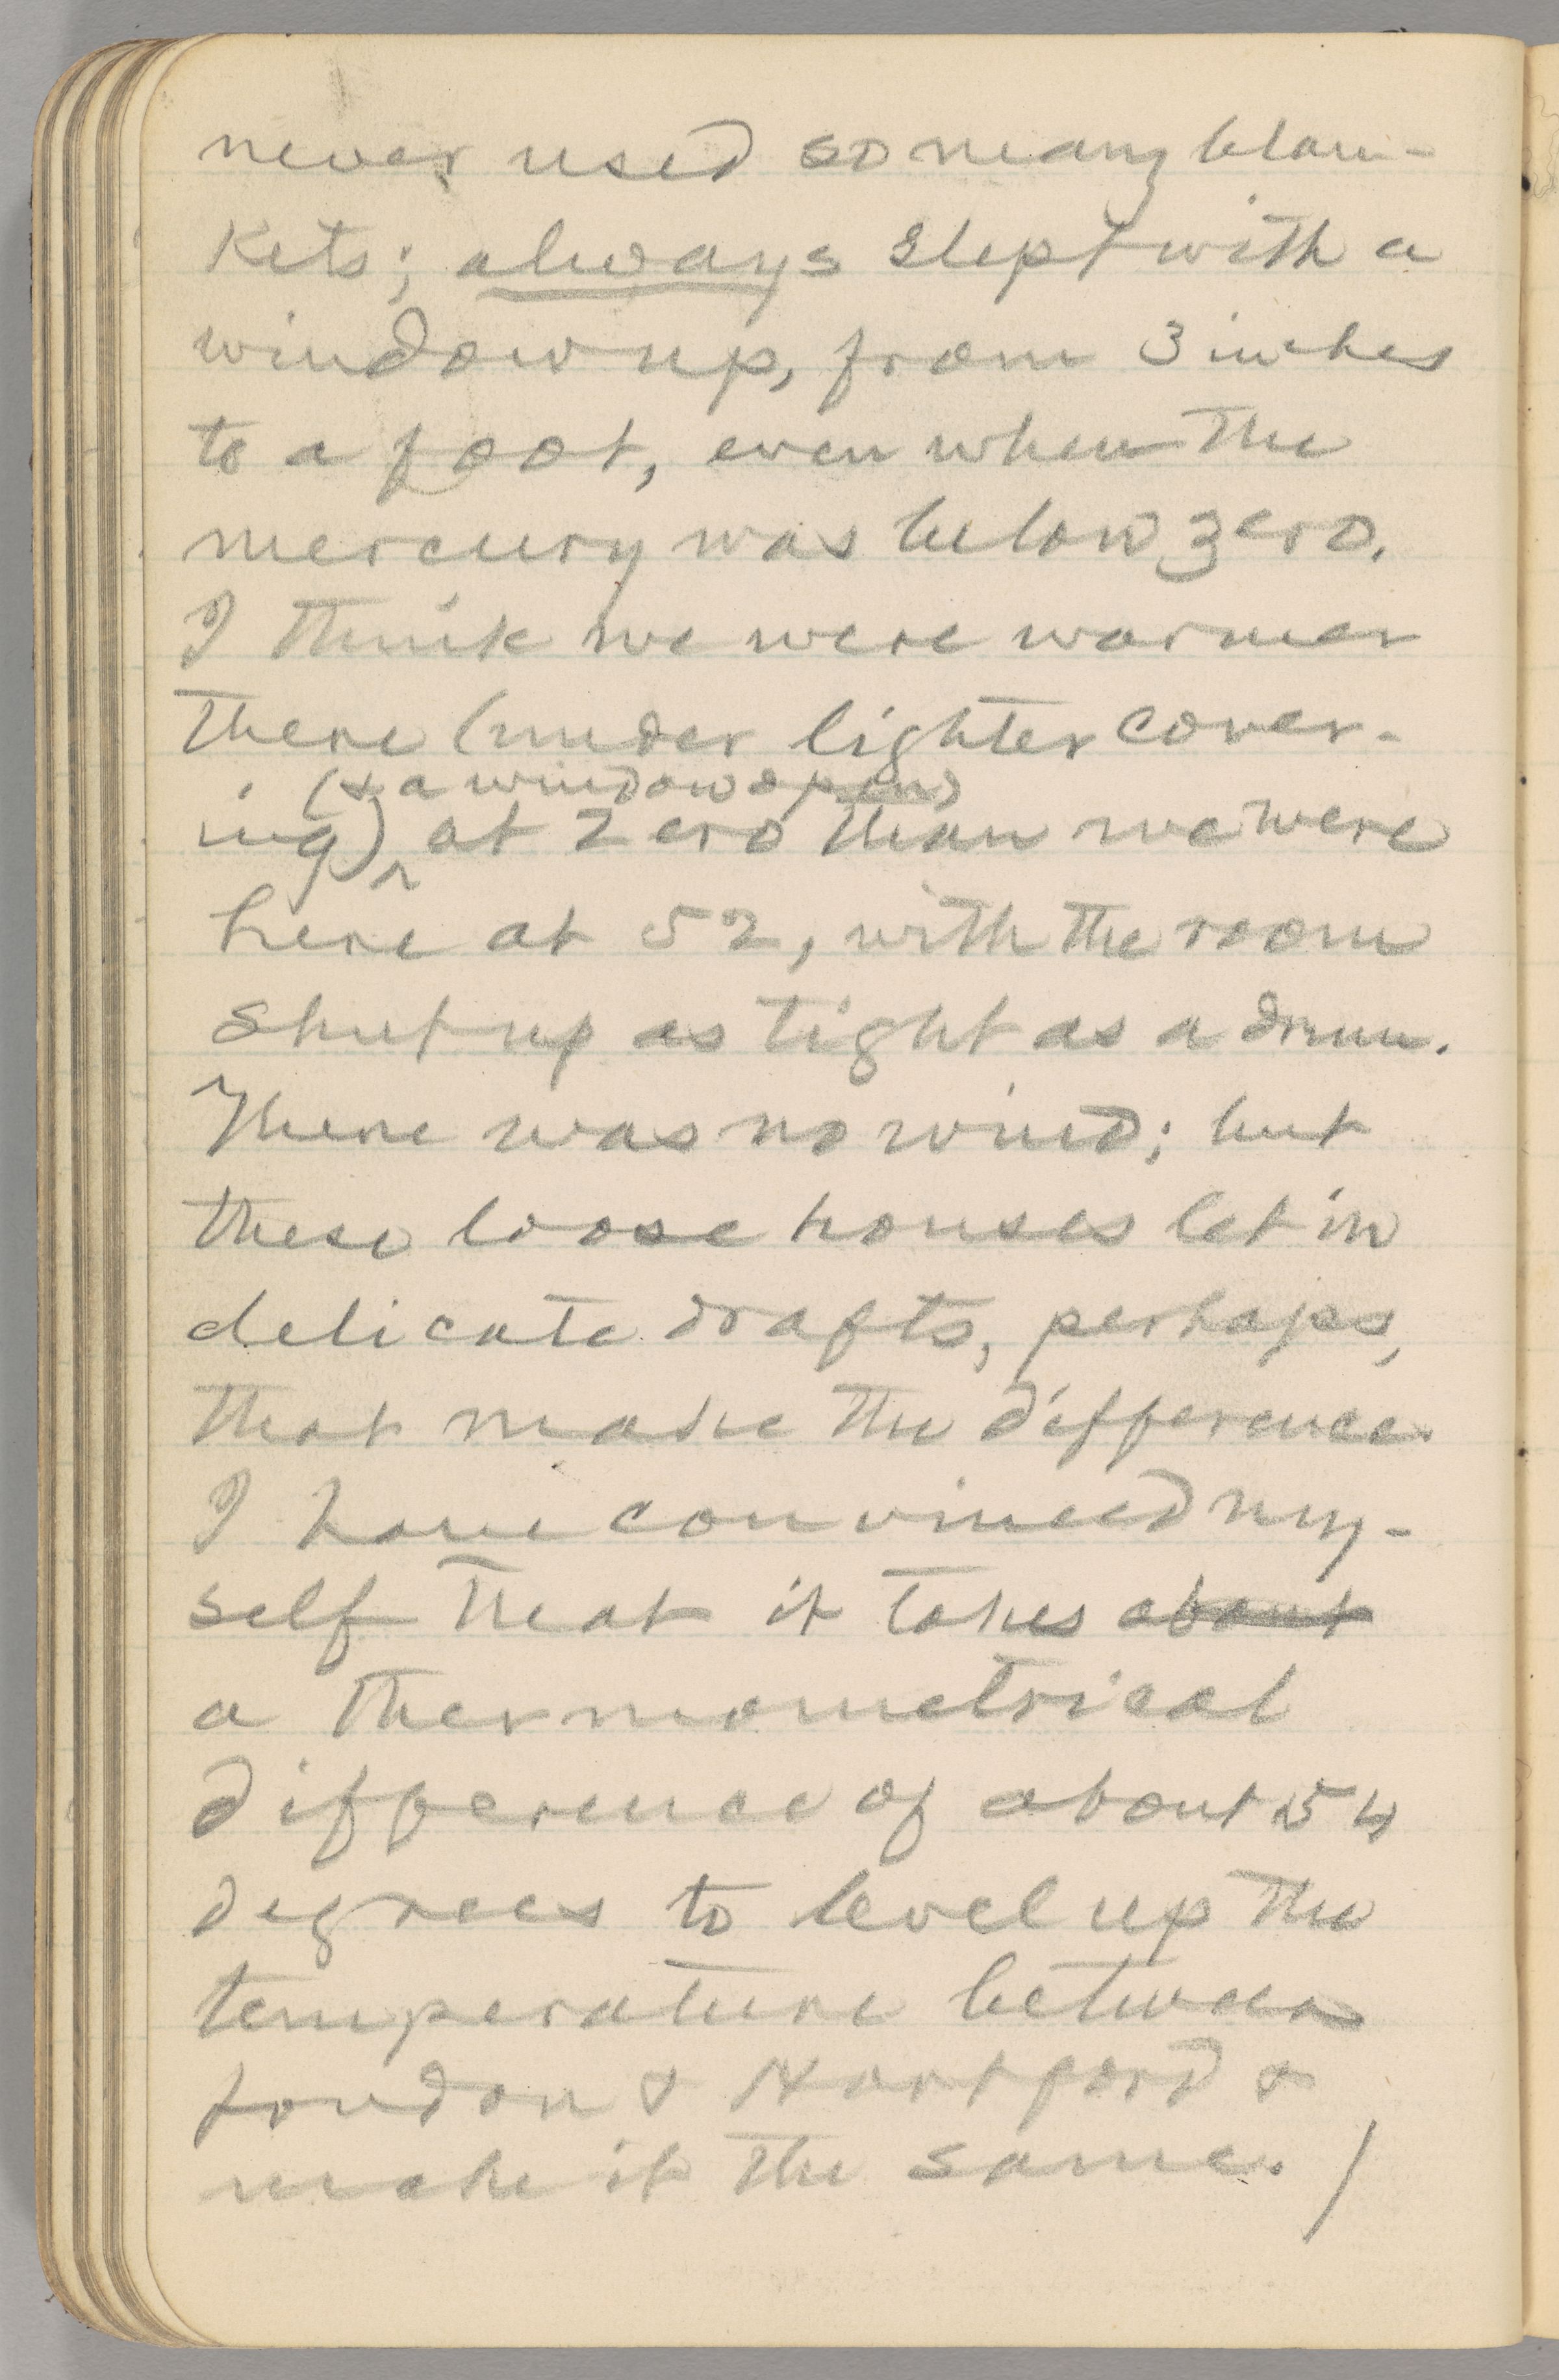 never used so many blan-
kets; always slept with a
window up, from 3 inches
to a foot, even when the
mercury was below zero.
I think we were warmer
there (under lighter cover-
(& a window open)
ing) ^ at zero than we were
here at 52, with the room
shut up as tight as a drum.
There was no wind; but
these loose houses let in
delicate drafts, perhaps,
that make the difference.
I have convinced my-
self that it takes about
a thermometrical
difference of about 54
degrees to level up the
temperature between
London & Hartford &
make it the same. /